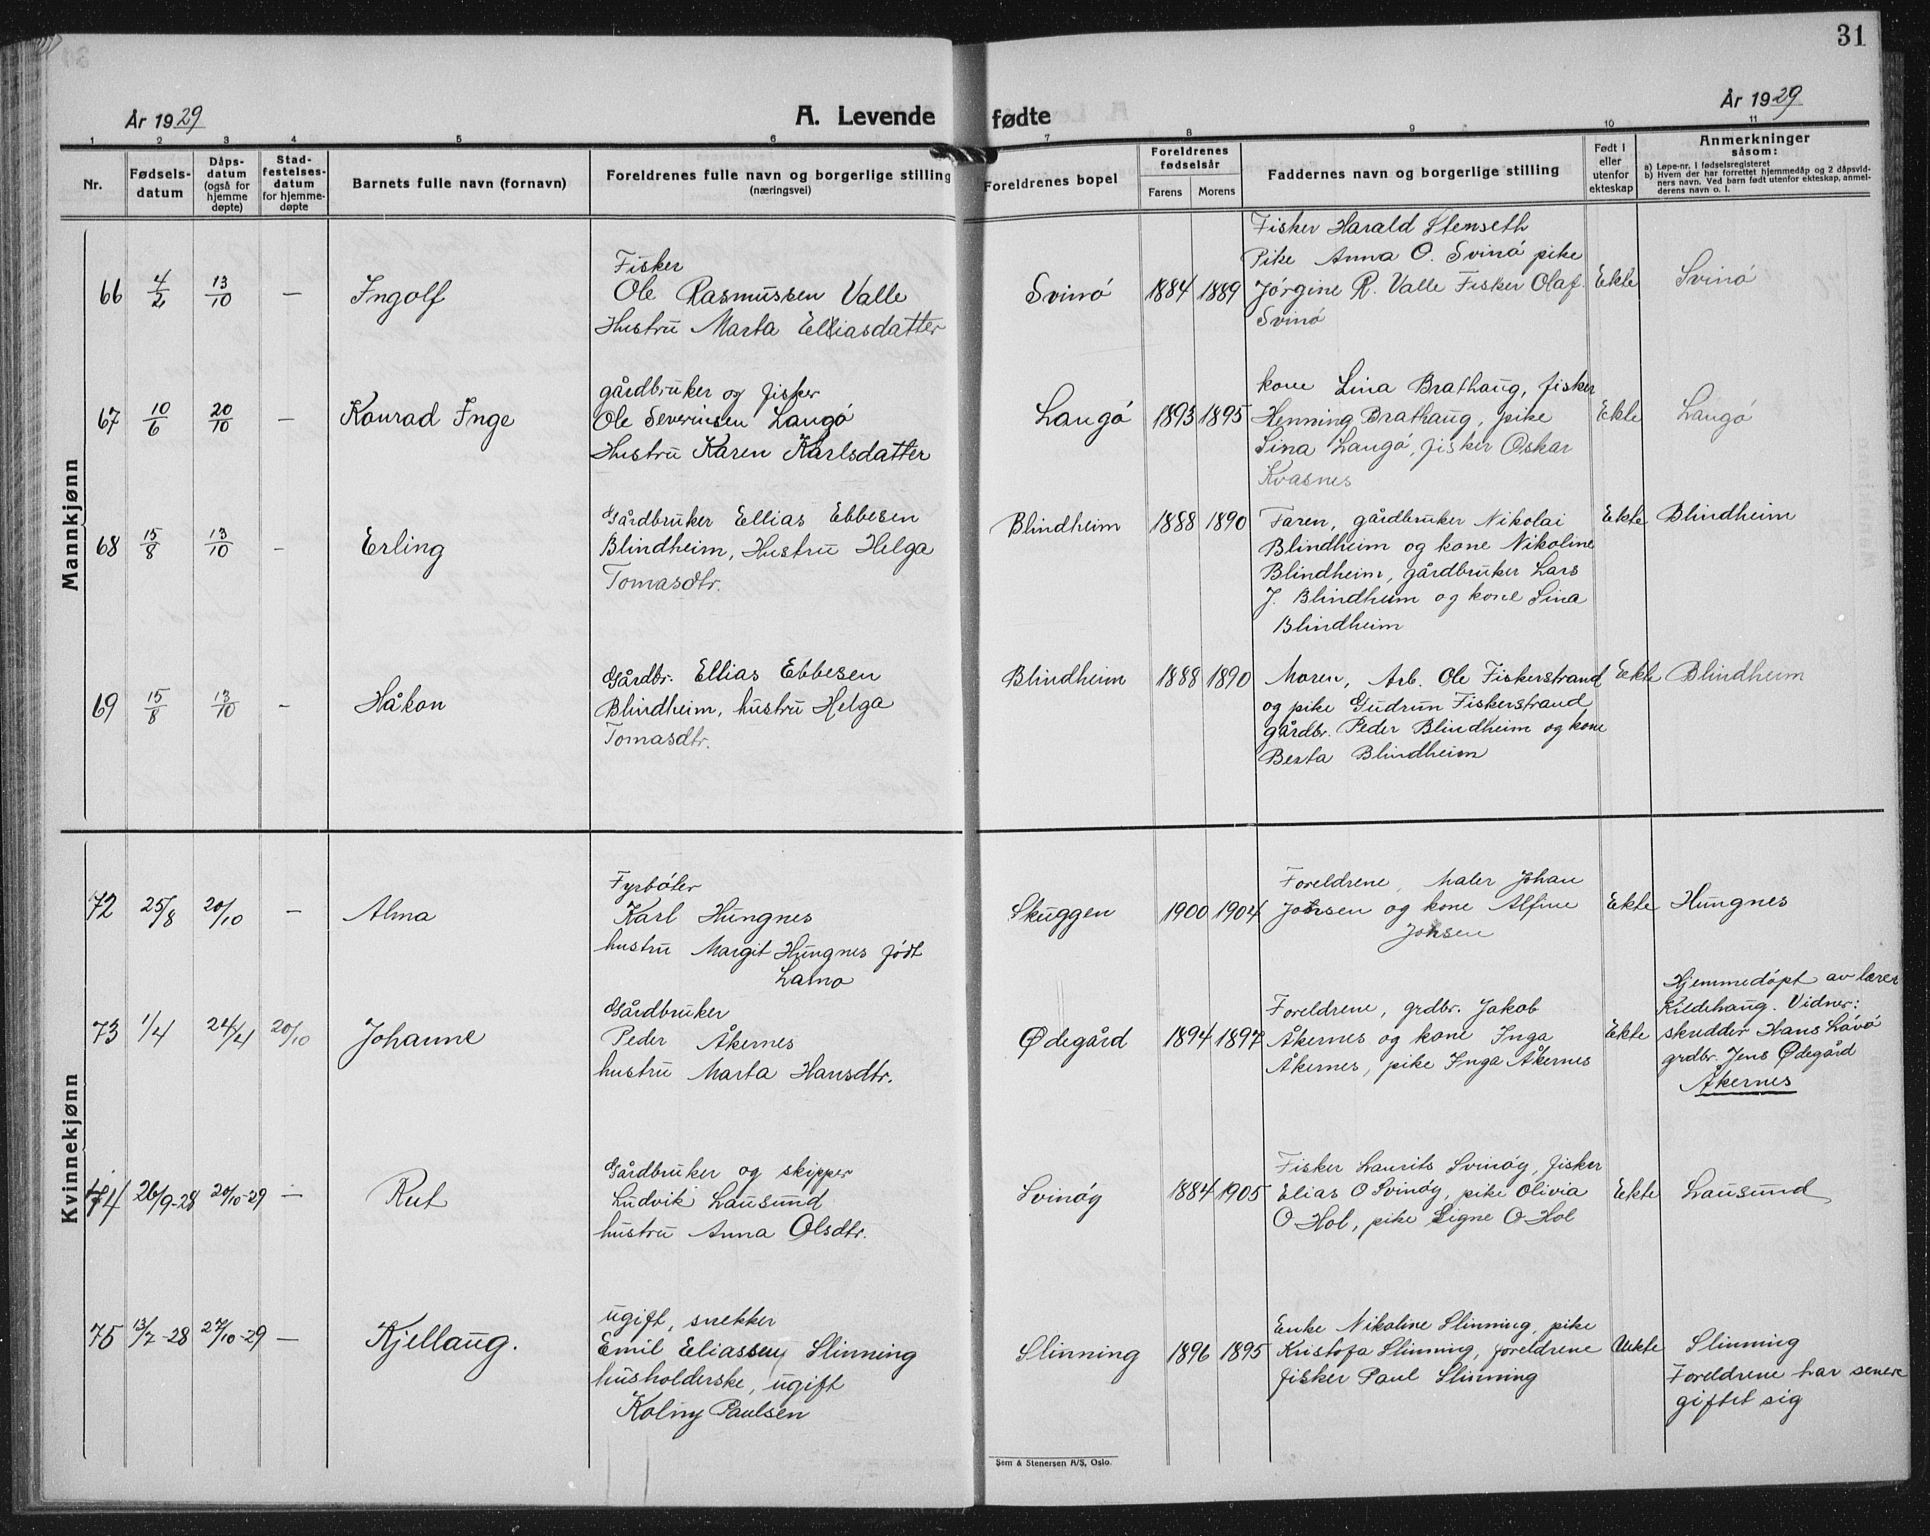 31
År 1929
A. Levende fødte
År 1929
1 2 3 4 5 6 7 8 9 10 11
Nr.
Fødsels-
datum
Dåps-
datum
(også for
hjemme
døpte)
Stad-
festelses-
datum
for hjemme-
døpte
Barnets fulle navn (fornavn)
Foreldrenes fulle navn og borgerlige stilling
(næringsvei)
Foreldrenes bopel
Foreldrenes
fødselsår
Farens Morens
Faddernes navn og borgerlige stilling
Født i
eller
utenfor
ekteskap
Anmerkninger
såsom:
a) Løpe-nr. i fødselsregisteret
b) Hvem der har forrettet hjemmedåp og 2 dåpsvid-
ners navn. Ved barn født utenfor ekteskap, anmel-
derens navn o. l.
Mannkjønn
66 4/2 13/10 — Ingolf
Fisker
Ole Rasmussen Valle
Hustru Marta Elliasdatter
Svinó 1884 1889
Fisker Harald Stenseth
Pike Anna O. Svinó pike
Jórgine R. Valle Fisker Olaf.
Svinó
Ekte Svinó
67 10/6 20/10 — Konrad Inge
gårdbruker og fisker
Ole Severinsen Langó
Hustru Karen Karlsdatter
Langó 1893 1895
kone Lina Brathaug, fisker
Henning Brathaug, pike
Lina Langó, fisker Oskar
Kvasnes
Ekte Langó
68 15/8 13/10 - Erling
Gårdbruker Ellias Ebbesen
Blindheim, Hustru Helga
Tomasdtr.
Blindheim 1888 1890
Faren, gårdbruker Nikolai
Blindheim og kone Nikoline
Blindheim, gårdbruker Lars
J. Blindheim og kone Lina
Blindheim
Ekte Blindheim
69 15/8 13/10 - Håkon
Gårdbr. Ellias Ebbesen
Blindheim, hustru Helga
Tomasdtr.
Blindheim 1888 1890
Moren, Arb. Ole Fiskerstrand
og pike Gudrun Fiskerstrand
gårdbr. Peder Blindheim og kone
Berta Blindheim
Ekte Blindheim
Kvinnekjønn
72 25/8 20/10 — Alma
Fyrbóter
Karl Hungnes
hustru Margit Hungnes født
Skuggen 1900 1904
Foreldrene, Maler Johan
Johsen og kone Alfine
Johsen
Ekte Hungnes
73 1/4 24/4 20/10 Johanne
Gårdbruker
Peder Åkernes
hustru Marta Hansdtr.
Ødegård 1894 1897
Foreldrene, grdbr. Jakob
Åkernes og kone Inga
Åkernes, pike Inga Åkernes
Ekte
Hjemmedópt av lærer
Kildehaug. Vidner:
skredder Hans Lóvó
grdbr. Jens Ødegård
Åkernes
74 26/9-28 20/10-29 — Rut
Gårdbruker og skipper
Ludvik Lausund
hustru Anna Olsdtr.
Svinóy 1884 1905
Fisker Laurits Svinóy, fisker
Elias O Svinóy, pike Olivia
O Hol, pike Signe O Hol
Ekte Lausund
75 13/7-28 27/10-29 — Kjellaug.
ugift, snekker
Emil Eliassen Slinning
husholderske, ugift
Kolny Paulsen
Slinning 1896 1895
Enke Nikoline Slinning, pike
Kristofa Slinning, foreldrene
fisker Paul Slinning
Uekte
Slinning
Foreldrene har senere
giftet sig
Sem & Stenersen A/S, Oslo.